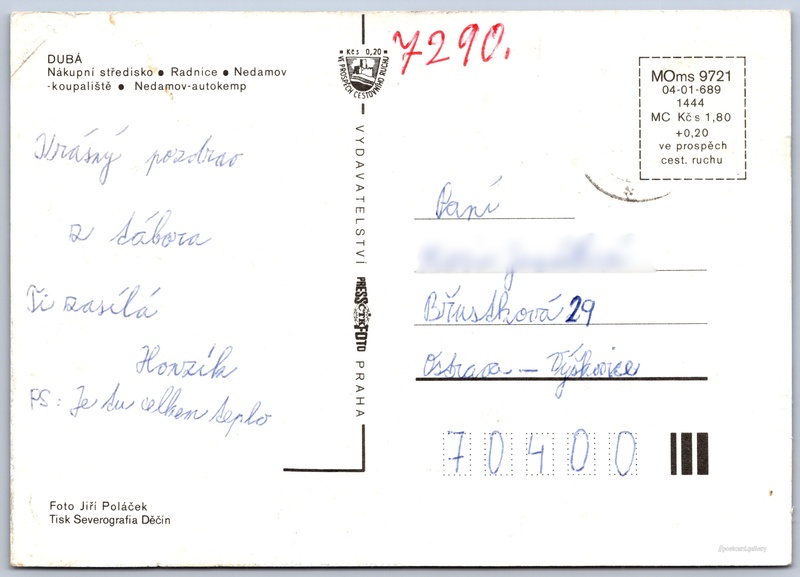 DUBÁ
Nákupní středisko ● Radnice ● Nedamov
-koupaliště ● Nedamov-autokemp
Krásný pozdrav
z tábora
Ti zasílá
Honzík
PS: Je tu celkem teplo
Foto Jiří Poláček
Tisk Severografia Děčín
Kčs 0,20
VE PROSPĚCH CESTOVNÍHO RUCHU
VYDAVATELSTVÍ
PRESSFOTO
ČTK
PRAHA
7290.
MOms 9721
04-01-689
1444
MC Kčs 1,80
+0,20
ve prospěch
cest. ruchu
Paní
Břustková 29
Ostrava - Výškovice
70400
postcard.gallery